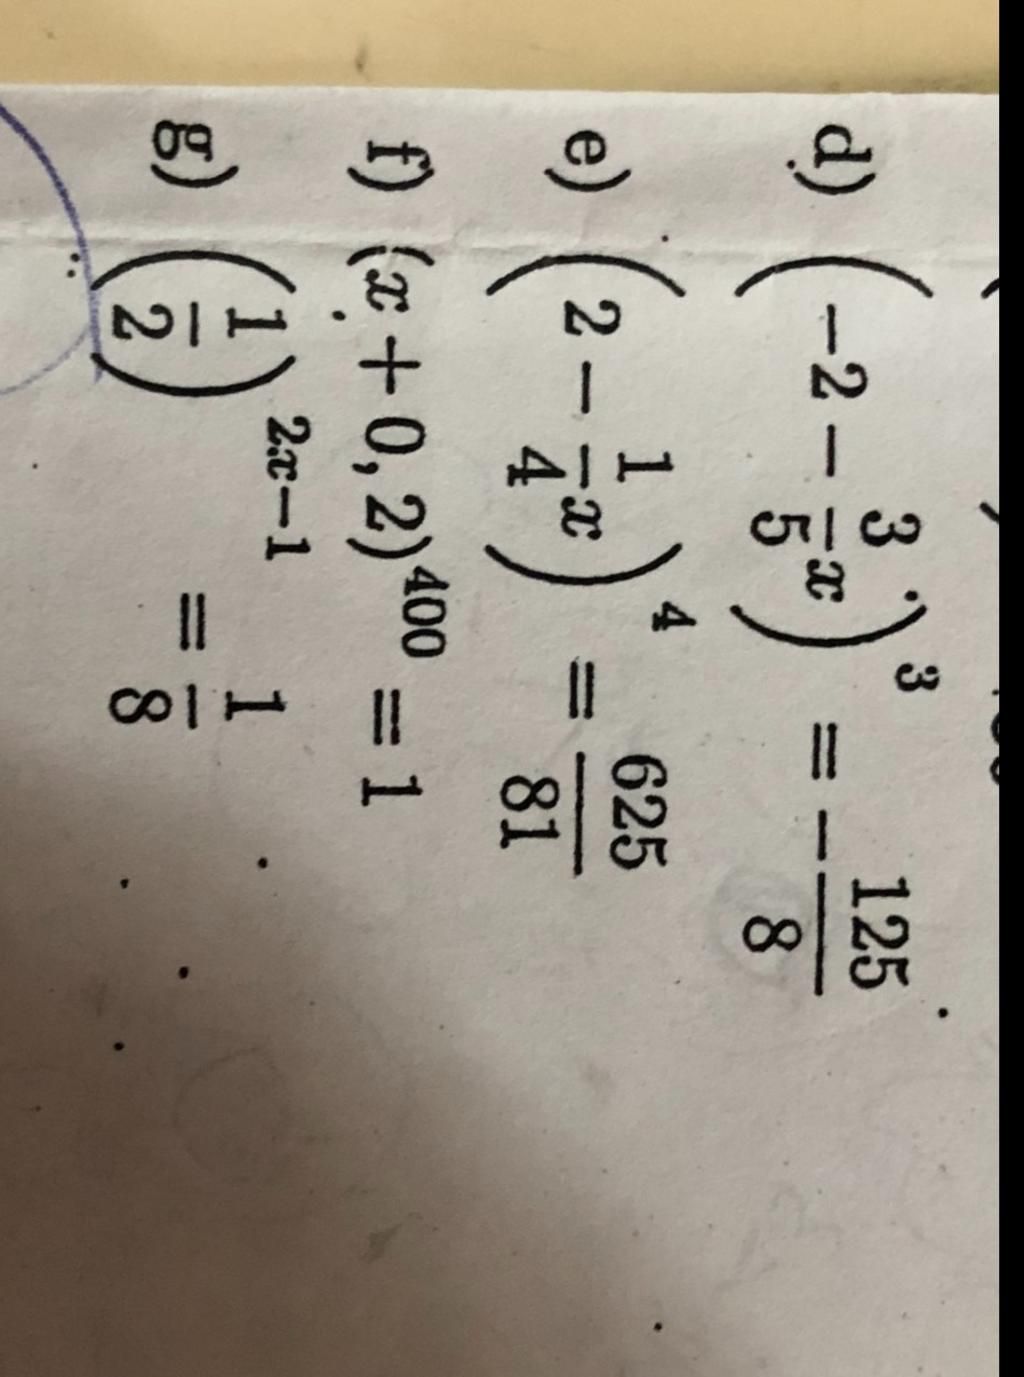 d) (-2 - 3/5 x)^3 = -125/8
e) (2 - 1/4 x)^4 = 625/81
f) (x + 0, 2)^400 = 1
g) (1/2)^2x-1 = 1/8